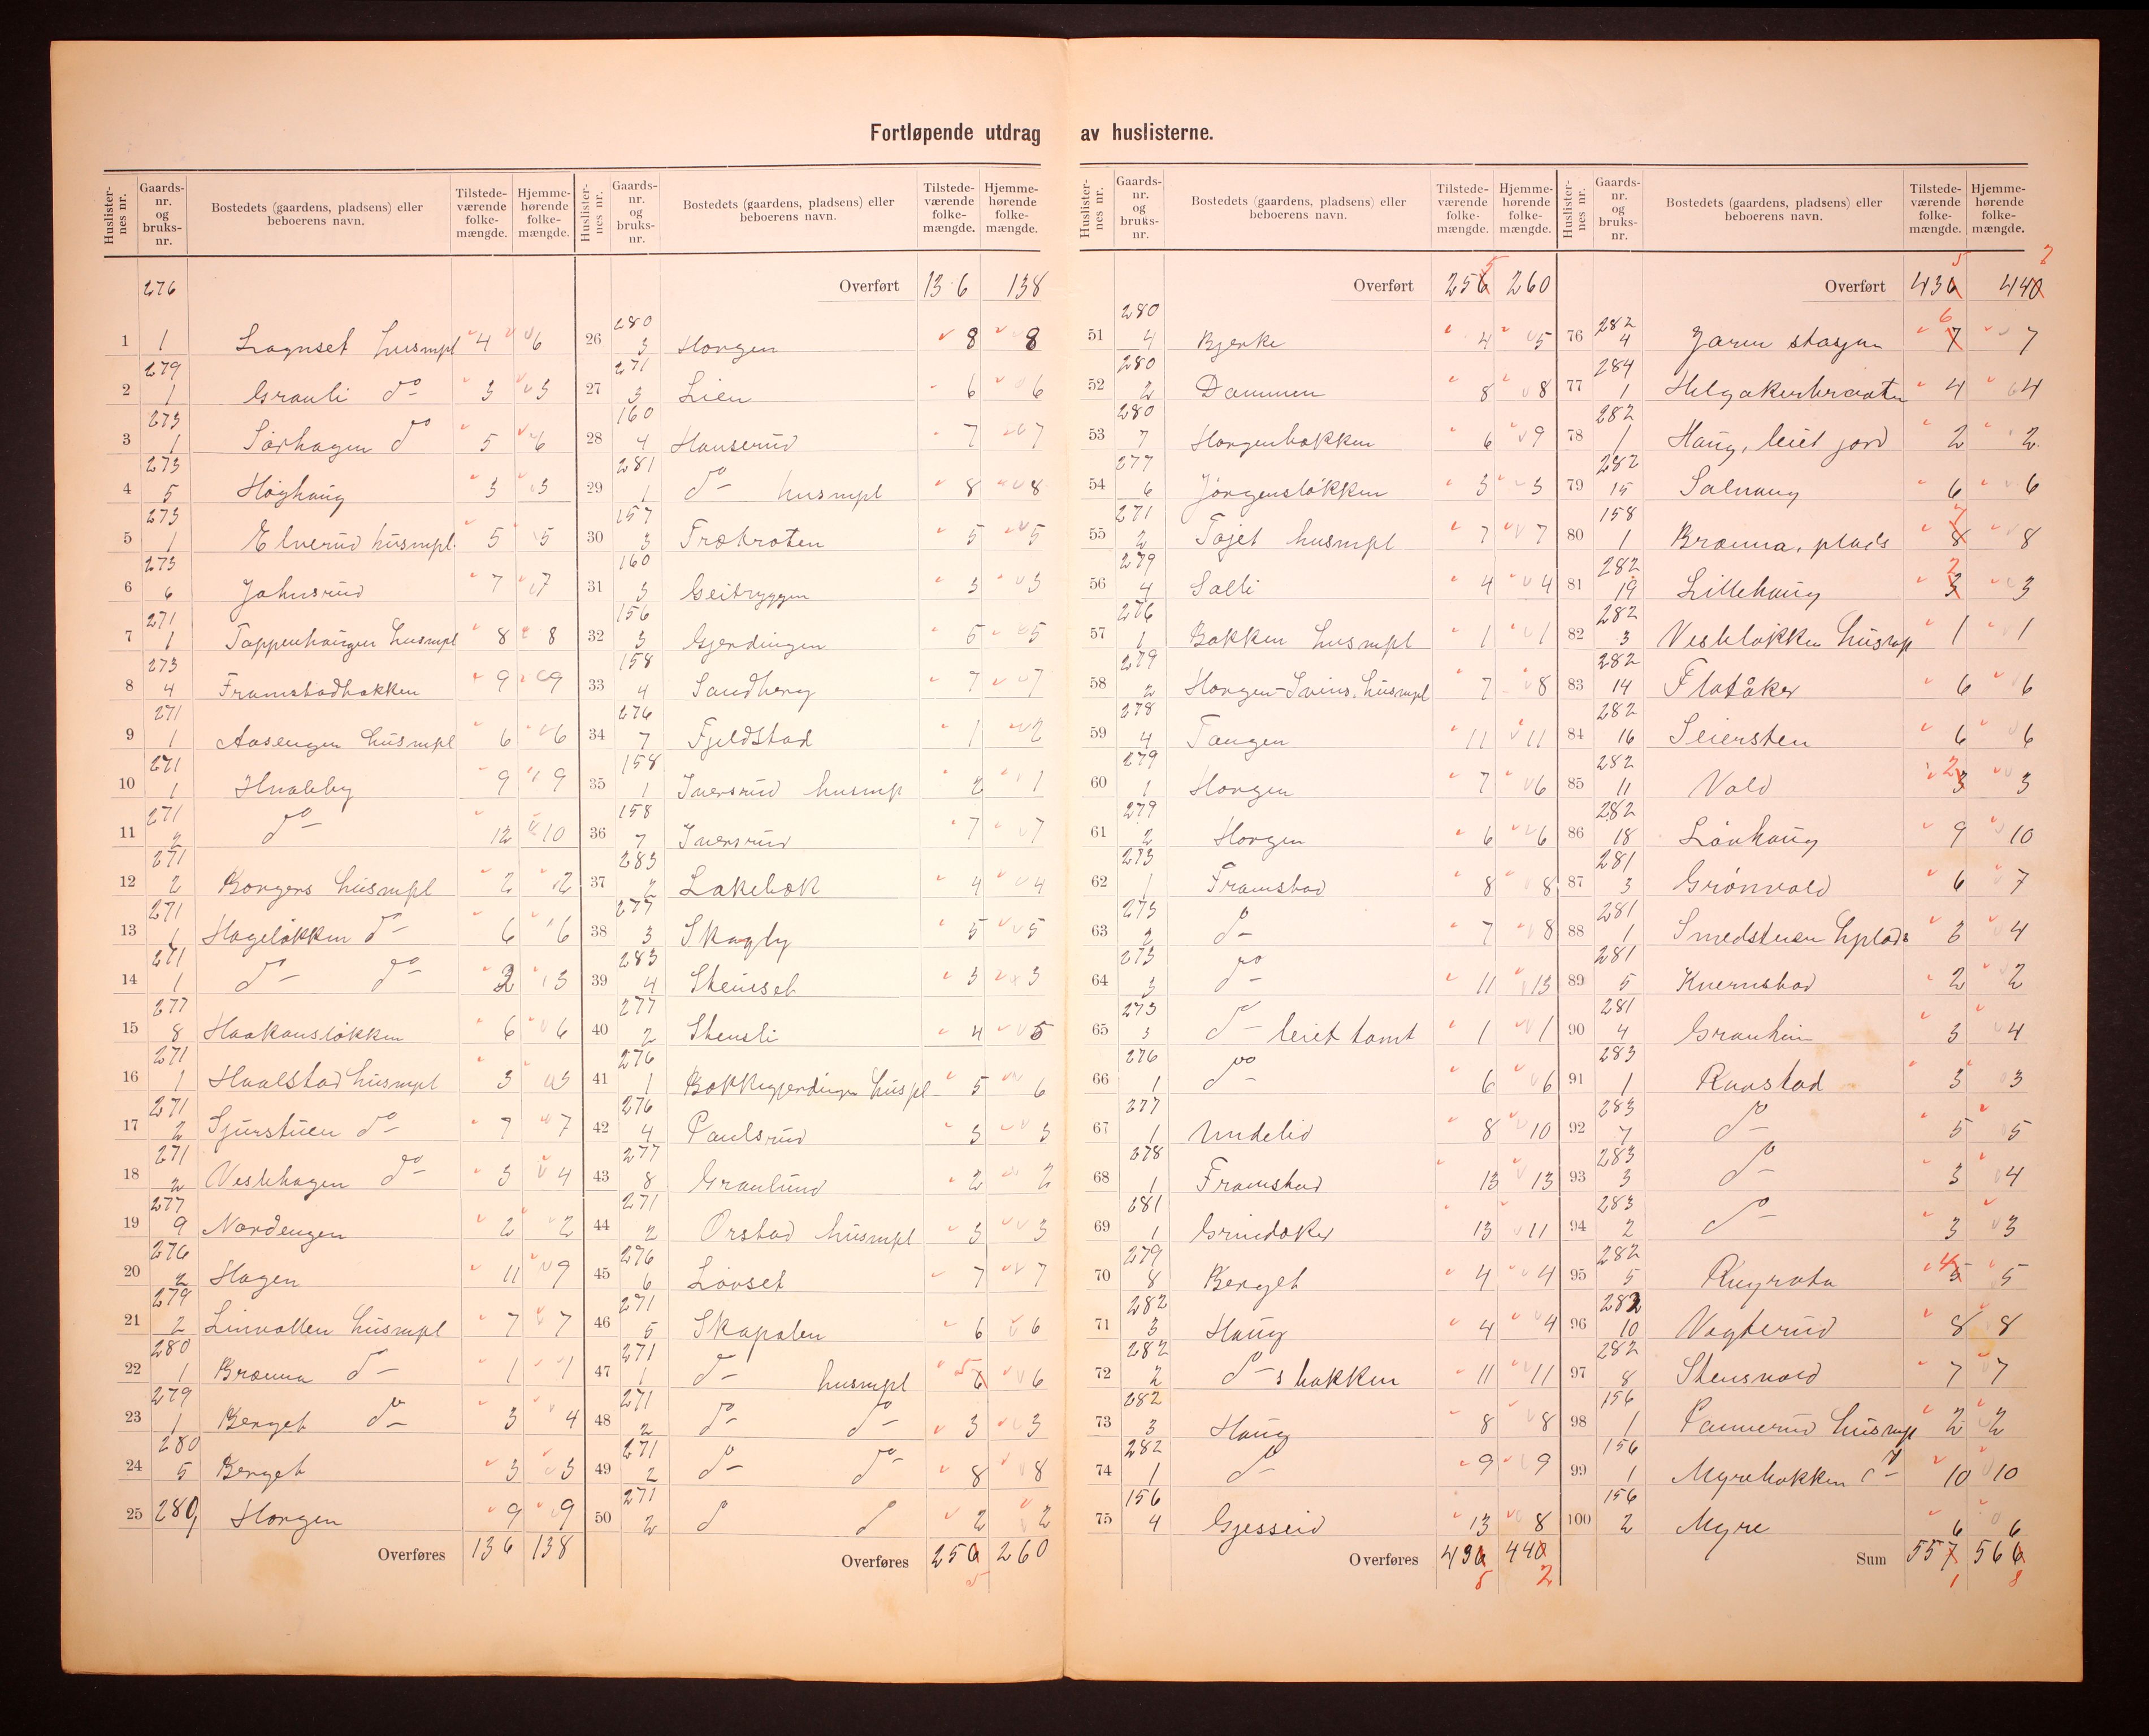 Fortløpende utdrag av huslisterne.
Huslisternes nr. Gaards-nr. og bruks-nr. Bostedets (gaardens, pladsens) eller beboerens navn. Tilstedeværende folkemængde. Hjemmehørende folkemængde.
276
1 1 Lognset husmpl 4 6
2 279 1 Granli do 3 3
3 273 1 Sørhagen do 5 6
4 273 5 Høghaug 3 3
5 273 1 Elverud husmpl. 5 5
6 273 6 Johnsrud 7 7
7 271 1 Toppenhaugen husmpl 8 8
8 273 4 Framstadbakken 9 9
9 271 1 Aasengen husmpl 6 6
10 271 1 Hvaleby 9 9
11 271 2 do 12 10
12 271 2 Borgens husmpl 2 2
13 271 1 Hageløkken do 6 6
14 271 1 do do 2 3
15 277 8 Haakonsløkken 6 6
16 271 1 Haalstad husmpl 3 3
17 271 2 Sjurstuen do 7 7
18 271 2 Veslehagen do 3 4
19 277 9 Nordengen 2 2
20 276 2 Hagen 11 9
21 279 2 Linvollen husmpl 7 7
22 280 1 Brænna do 1 1
23 279 1 Berget do 3 4
24 280 5 Berget 3 3
25 280, Horgen 9 9
Overføres 136 138
Huslisternes nr. Gaards-nr. og bruks-nr. Bostedets (gaardens, pladsens) eller beboerens navn. Tilstedeværende folkemængde. Hjemmehørende folkemængde.
Overført 136 138
26 280 3 Horgen 8 8
27 271 3 Lien 6 6
28 160 4 Hanserud 7 7
29 281 1 do husmpl 8 8
30 157 3 Trækroten 5 5
31 160 3 Geitryggen 3 3
32 156 3 Gjerdingen 5 5
33 158 4 Sandberg 7 7
34 276 7 Fjeldstad 1 2
35 158 1 Iversrud husmp 2 1
36 158 7 Iversrud 7 7
37 283 2 Lakebæk 4 4
38 277 3 Skogly 5 5
39 283 4 Stenset 3 3
40 277 2 Stensli 4 5
41 276 1 Bakkegjerdingen huspl 5 6
42 276 4 Paulsrud 3 3
43 277 8 Granlund 2 2
44 271 2 Orstad husmpl 3 3
45 276 6 Lovset 7 7
46 271 5 Skapalen 6 6
47 271 1 do husmpl 5 6 6
48 271 2 do do 3 3
49 271 2 do do 8 8
50 271 2 do do 2 2
Overføres 256 260
5
Huslisternes nr. Gaards-nr. og bruks-nr. Bostedets (gaardens, pladsens) eller beboerens navn. Tilstedeværende folkemængde. Hjemmehørende folkemængde.
5
Overført 256 260
51 280 4 Bjerke 4 5
52 280 2 Dammen 8 8
53 280 7 Horgenbakken 6 9
54 277 6 Jørgensløkken 3 3
55 271 2 Tajet husmpl 7 7
56 279 4 Solli 4 4
57 276 1 Bakken husmpl 1 1
58 279 2 Horgen-Svens. husmpl 7 8
59 278 4 Tangen 11 11
60 279 1 Horgen 7 6
61 279 2 Horgen 6 6
62 273 1 Framstad 8 8
63 273 2 do 7 8
64 273 3 do 11 13
65 273 3 do leiet tomt 1 1
66 276 1 do 6 6
67 277 1 Undelid 8 10
68 278 1 Framstad 13 13
69 281 1 Grindaker 13 11
70 279 8 Berget 4 4
71 282 3 Haug 4 4
72 282 2 do s bakken 11 11
73 282 3 Haug 8 8
74 282 1 do 9 9
75 156 4 Gjesseid 13 8
Overføres 436 440
5 2
Huslisternes nr. Gaards-nr. og bruks-nr. Bostedets (gaardens, pladsens) eller beboerens navn. Tilstedeværende folkemængde. Hjemmehørende folkemængde.
5 2
Overført 436 440
76 282 4 Jaren stasjon 6 7 7
77 284 1 Helgakerbraaten 4 4
78 282 1 Haug, leiet jord 2 2
79 282 15 Solhaug 6 6
80 158 1 Brænna, plads 7 8 8
81 282 19 Lillehaug 2 3 3
82 282 3 Vesleløkken husmp 1 1
83 282 14 Flatåker 6 6
84 282 16 Seiersten 6 6
85 282 11 Vold 2 3 3
86 282 18 Løvhaug 9 10
87 281 3 Grønvold 6 7
88 281 1 Smedstuen hplads 3 4
89 281 5 Kvernstad 2 2
90 281 4 Granheim 3 4
91 283 1 Raastad 3 3
92 283 7 do 5 5
93 283 3 do 3 4
94 283 2 do 3 3
95 282 5 Rugrota 4 5 5
96 282 10 Vogterud 8 8
97 282 8 Stensvold 7 7
98 156 1 Pannerud husmp 2 2
99 156 1 Myrebakken do 10 10
100 156 2 Myre 6 6
Sum 557 566
1 8